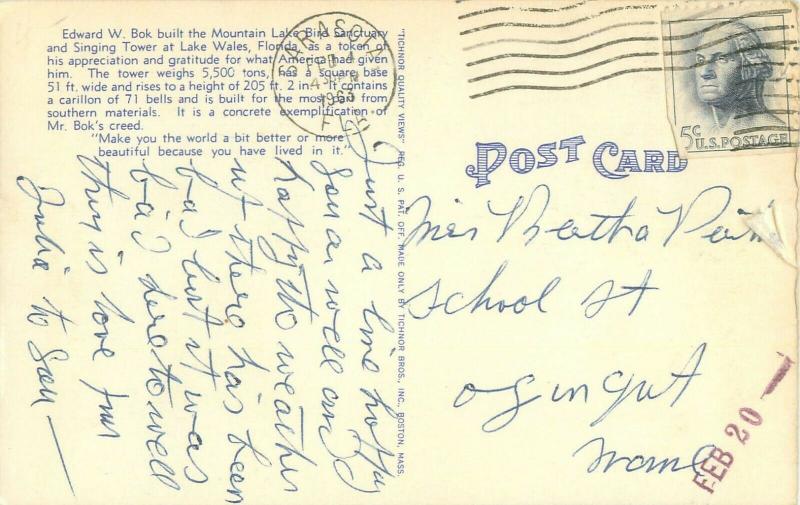 Edward W. Bok built the Mountain Lake Bird Sanctuary
and Singing Tower at Lake Wales, Florida, as a token of
his appreciation and gratitude for what America had given
him. The tower weighs 5,500 tons, has a square base
51 ft. wide and rises to a height of 205 ft. 2 in. It contains
a carillon of 71 bells and is built for the most part from
southern materials. It is a concrete exemplification of
Mr. Bok's creed.
"Make you the world a bit better or more
beautiful because you have lived in it."
Just a line
you are well and
happy the weather
has been
bad but it was
bad
this is love from
Julia to
"TICHNOR QUALITY VIEWS" REG. U. S. PAT. OFF. MADE ONLY BY TICHNOR BROS., INC., BOSTON, MASS.
SARASOTA
FEB
1963
5c
U.S. POSTAGE
POST CARD
Miss Bertha
School St
Ogunquit
Maine
FEB 20